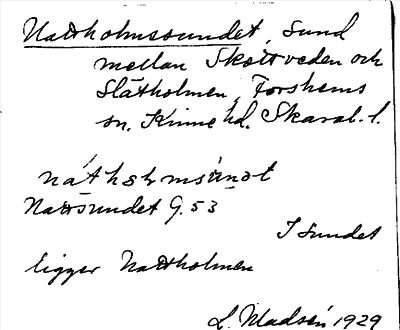 Nattholmssundet, sund
mellan Skottveden och
Slätholmen, Forshems
sn. Kinne hd. Skarab. l.
nátholmsùndt
Nattsundet G. 53
I sundet
ligger Nattholmen
L. Madsén 1929